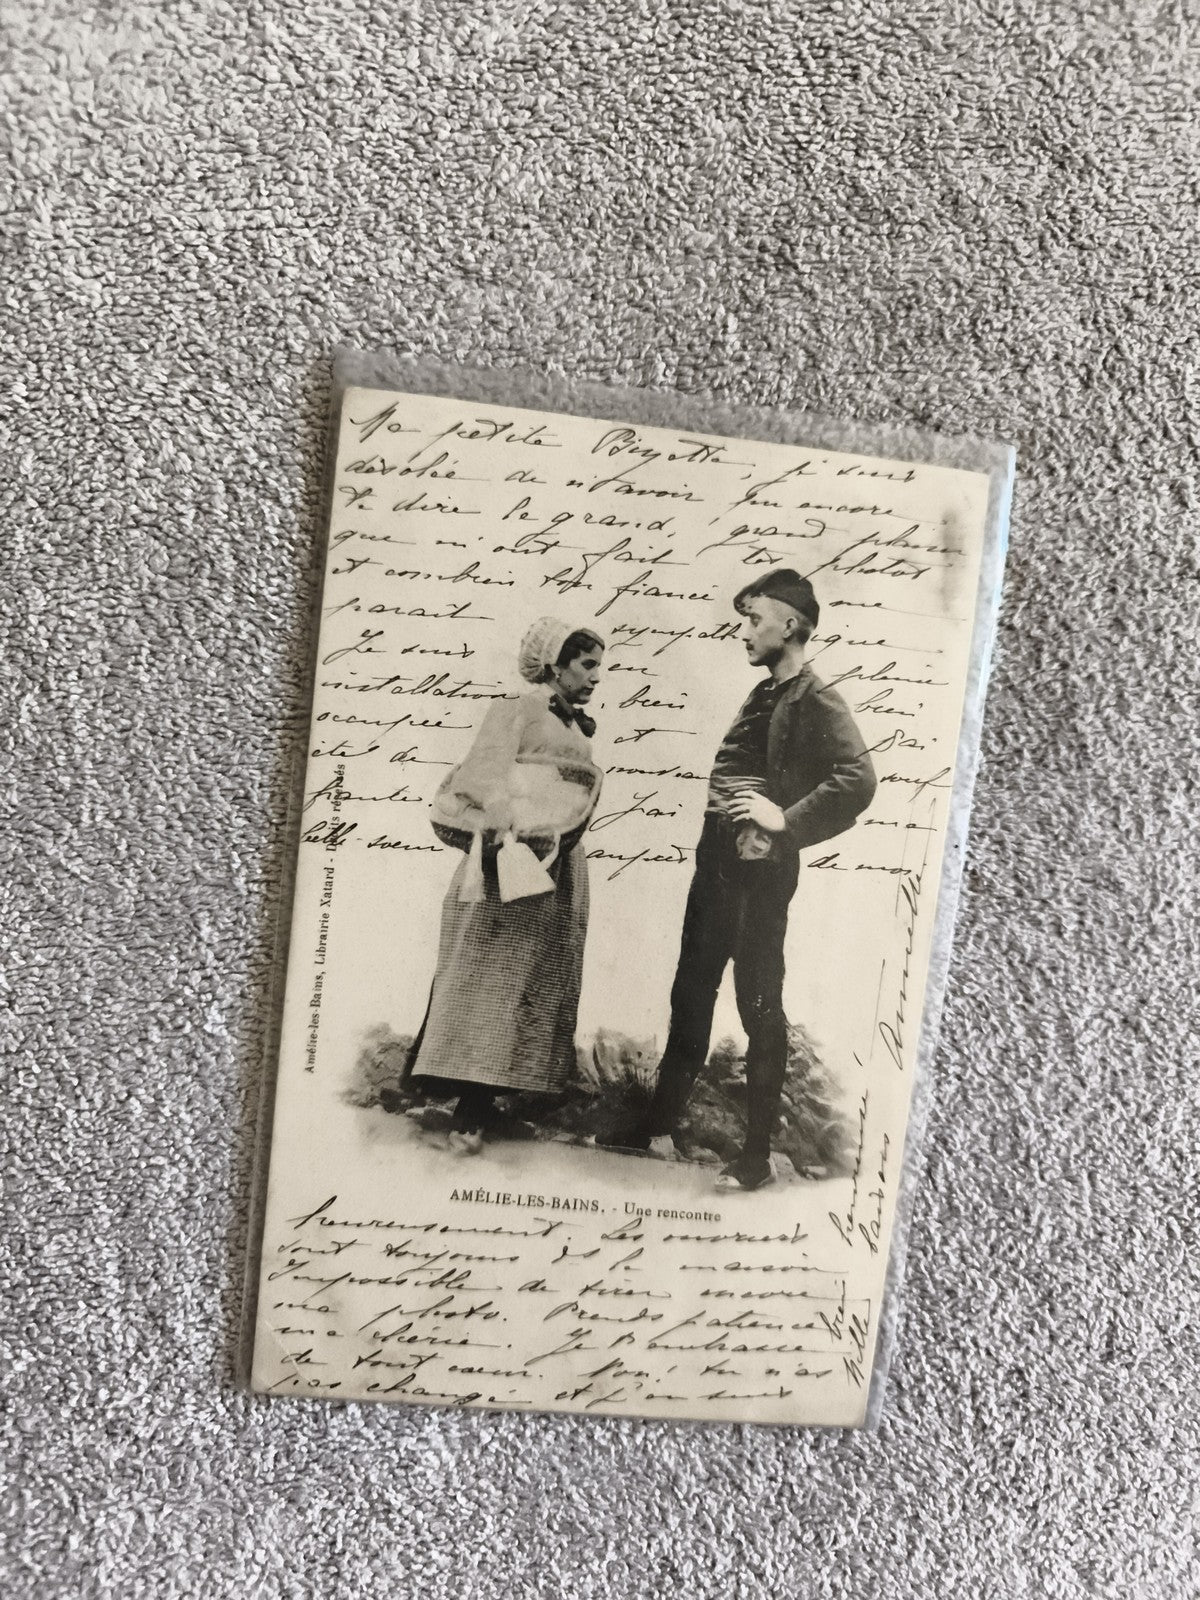 Ma petite Biquette, je suis
désolée de n'avoir pu encore
te dire le grand, grand plaisir
que m'ont fait tes photos
et combien ton fiancé me
parait sympathique
Je suis en pleine
installation, bien bien
occupée et j'ai
été de nouveau souf
frante. J'ai ma
belle-soeur auprès de moi
Amélie-les-Bains, Librairie Xatard - Droits réservés
AMÉLIE-LES-BAINS. - Une rencontre
heureusement. Les ouvriers
sont toujours ds la maison
Impossible de tirer encore
ma photo. Prends patience
ma chérie. Je t'embrasse
de tout coeur. Non! tu n'as
pas changé et j'en suis
bien heureuse!
Mille baisers Annette